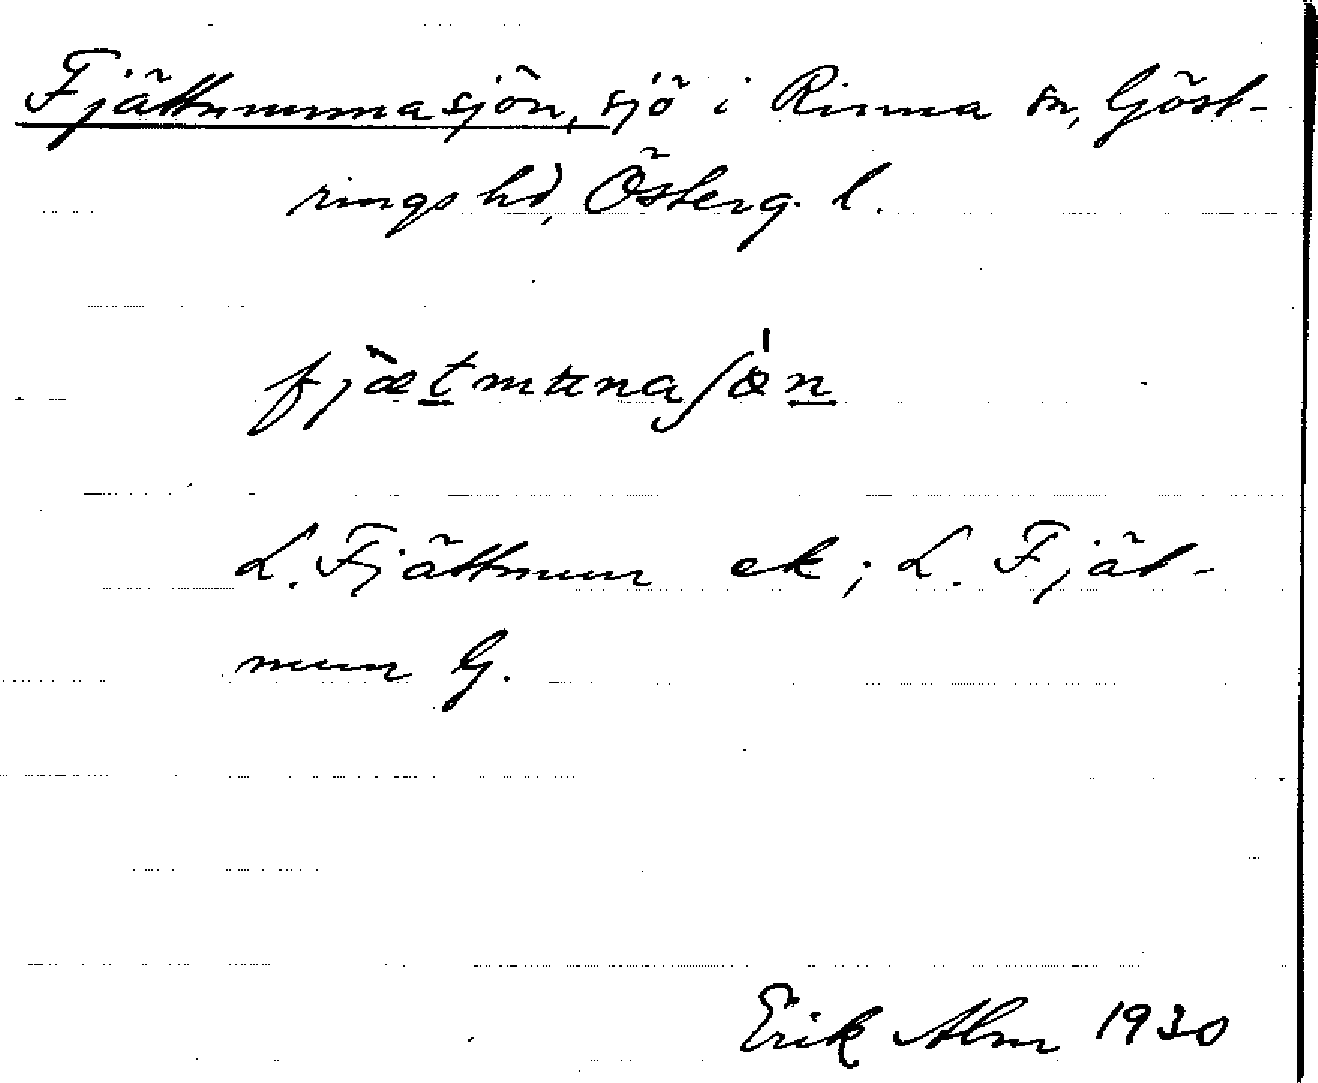 Fjättmunnasjön, sjö i Rinna sn, Göst-
rings hd, Österg. l.
fjæ̀tmunaʃø̍n
L. Fjättmun ek; L. Fjät-
mun G.
Erik Alm 1930